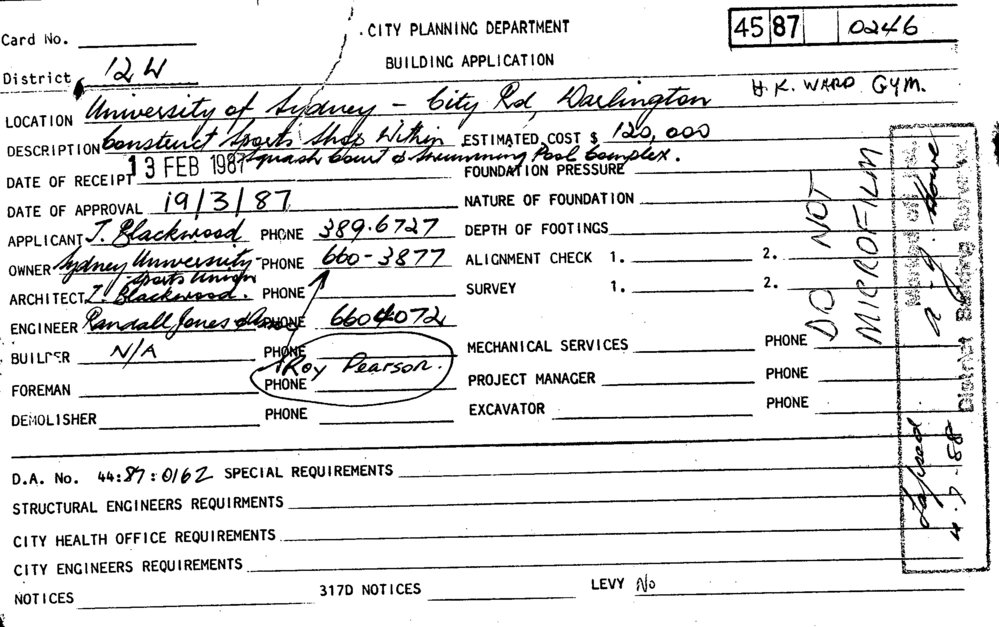 Card No. CITY PLANNING DEPARTMENT 45 87 0246
District 12W BUILDING APPLICATION
H.K. WARD GYM.
LOCATION University of Sydney - City Rd, Darlington
DESCRIPTION Construct Sports Shop Within ESTIMATED COST $ 120,000
Squash Court & Swimming Pool Complex.
DATE OF RECEIPT 13 FEB 1987 FOUNDATION PRESSURE
DATE OF APPROVAL 19/3/87 NATURE OF FOUNDATION
APPLICANT T. Blackwood PHONE 389.6727 DEPTH OF FOOTINGS
OWNER Sydney University PHONE 660-3877 ALIGNMENT CHECK 1. 2.
Sports Union
ARCHITECT T. Blackwood. PHONE SURVEY 1. 2.
ENGINEER Randall Jones & PHONE 6604072
BUILDER N/A PHONE MECHANICAL SERVICES PHONE
Roy Pearson.
FOREMAN PHONE PROJECT MANAGER PHONE
DEMOLISHER PHONE EXCAVATOR PHONE
DO NOT
MICROFILM
D.A. No. 44:87:0162 SPECIAL REQUIREMENTS
STRUCTURAL ENGINEERS REQUIRMENTS
CITY HEALTH OFFICE REQUIREMENTS
CITY ENGINEERS REQUIREMENTS
NOTICES 317D NOTICES LEVY No
Lapsed
District Building Surveyor